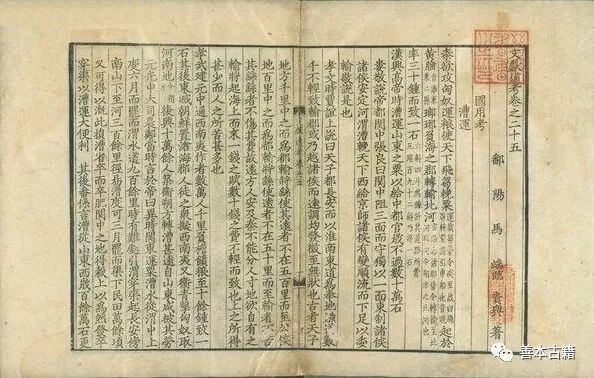 文獻通考卷之二十五
鄱陽馬端臨貴與著
國用考
漕運
秦欲攻匈奴運糧使天下飛芻輓粟起於
黃腄琅琊負海之郡轉輸北河
率三十鍾而致一石
漢興高帝時漕運山東之粟以給中都官歲不過數十萬石
婁敬說帝都關中張良曰關中阻三面而守獨以一面東制諸侯
諸侯安定河渭漕輓天下西給京師諸侯有變順流而下足以委
輸敬說是也
孝文時賈誼上說曰天子都長安而以淮南東道為奉地鏹道數
千不輕致輸郡或乃越諸侯而遠調均發徵至無狀也古者天子
地方千里中之而為都輸將繇使其遠者不在五百里而至公侯
地百里中之而為都輸將繇使遠者不在五十里而至輸者不苦
其繇繇者不傷其費故遠方人安及秦不能分人寸地欲自有之
輸將起海上而來一錢之賦數十錢之費不輕而致也上之所得
甚少而人之所苦甚多也
孝武建元中通西南夷作者數萬人千里負擔餽糧率十餘鍾致一
石其後東滅朝鮮置滄海郡人徒之費擬西南夷又衛青擊匈奴取
河南地復興十萬餘人築衛朔方轉漕甚遠自山東咸被其勞
元光中大司農鄭當時言於帝曰異時關東運粟漕水從渭中上
度六月而罷而渭水道九百餘里時有難處引渭穿渠起長安傍
南山下至河三百餘里徑易漕度可三月罷而渠下民田萬餘頃
又可得以溉此損漕省卒而益肥關中之地得穀上以為然發卒
穿渠以漕運大便利 其後番係言漕從山東西歲百餘萬石更
善本古籍